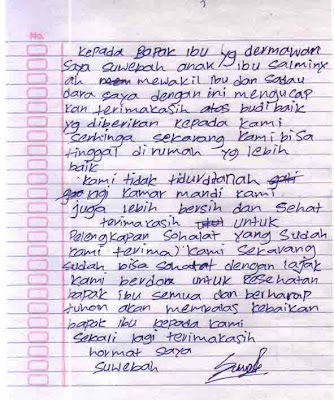 No.
Kepada Bapak ibu yg dermawan
Saya suwebah anak ibu salminx
ah mewakil ibu dan saudu
dara saya dengan ini mengucap
kan terimakasih atas budi baik
yg diberikan kepada kami
sehinga sekarang kami bisa
tinggal di rumah yg lebih
baik
kami tidak tidur ditanah
lagi kamar mandi kami
juga lebih bersih dan sehat
terimakasih untuk
pelengkapan sohalat yang sudah
kami terima) kami sekarang
sudah bisa sawatat dengan lajak
kami berdoa untuk kesehatan
bapak ibu semua dan berharap
tuhon akan membalas kebaikan
bapok ibu kepada kami
sekali lagi terimakasih
hormat saya
suwebah